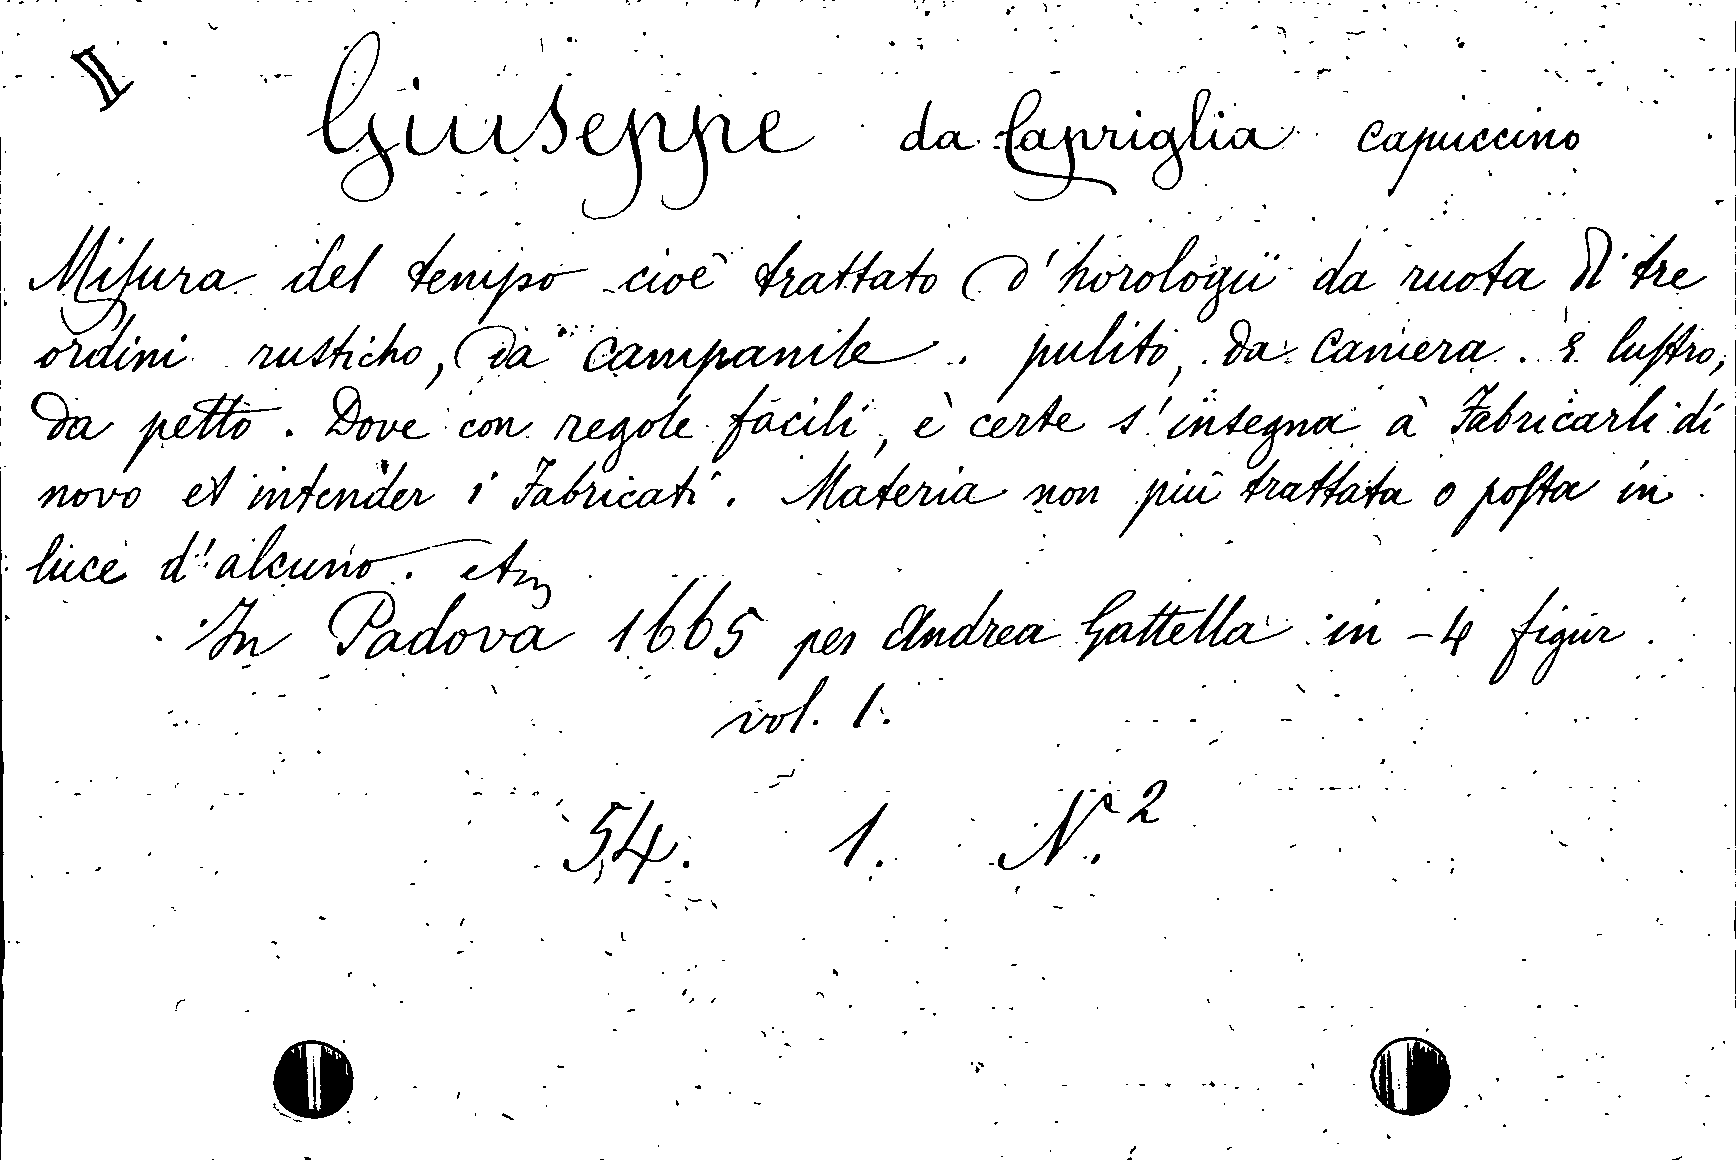 I
Giuseppe da Capriglia capuccino
Miſura del tempo cioè trattato d'horologii da ruota di tre
ordini rusticho, da campanile. pulito, da camera. e luſtro,
da petto. Dove con regole facili, è certe s'insegna à Fabricarli di
novo et intender i Fabricati. Materia non più trattata o poſta in
luce d'alcuno.
In Padova 1665 per Andrea Gattella in-4 figur.
vol. 1.
54. 1. N.º 2